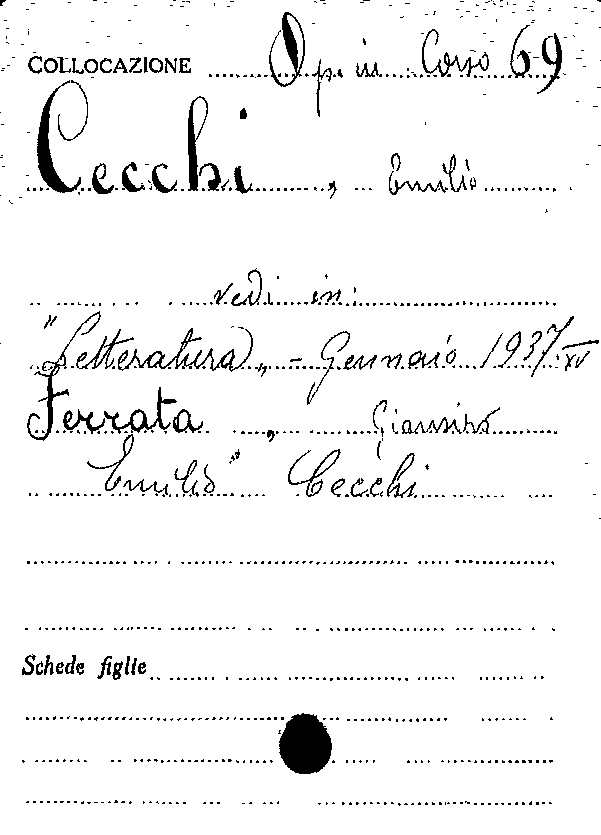 COLLOCAZIONE Op. in Corso 69
Cecchi, Emilio
vedi in:
"Letteratura" - Gennaio 1937 XV
Ferrata, Giansiro
Emilio" Cecchi
Schede figlie